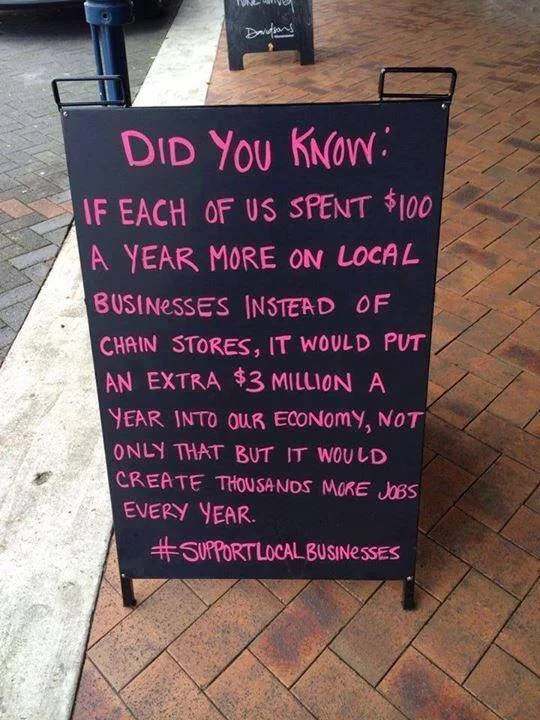 Davidsons
DID YOU KNOW:
IF EACH OF US SPENT $100
A YEAR MORE ON LOCAL
BUSINESSES INSTEAD OF
CHAIN STORES, IT WOULD PUT
AN EXTRA $3 MILLION A
YEAR INTO OUR ECONOMY, NOT
ONLY THAT BUT IT WOULD
CREATE THOUSANDS MORE JOBS
EVERY YEAR.
#SUPPORTLOCALBUSINESSES